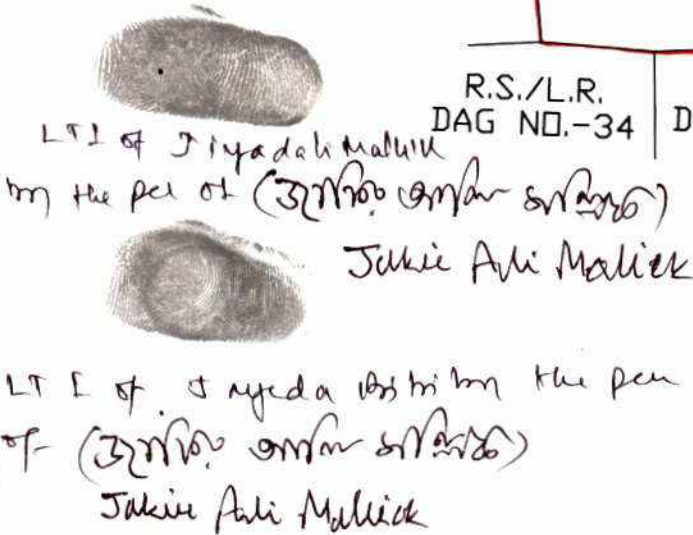 R.S./L.R.
DAG NO.-34
D
LTI of Jiyadali Mallick
by the pen of (জাকির আলি মল্লিক)
Jakir Ali Mallick
LTI of Bibi by the pen
of (জাকির আলি মল্লিক)
Jakir Ali Mallick